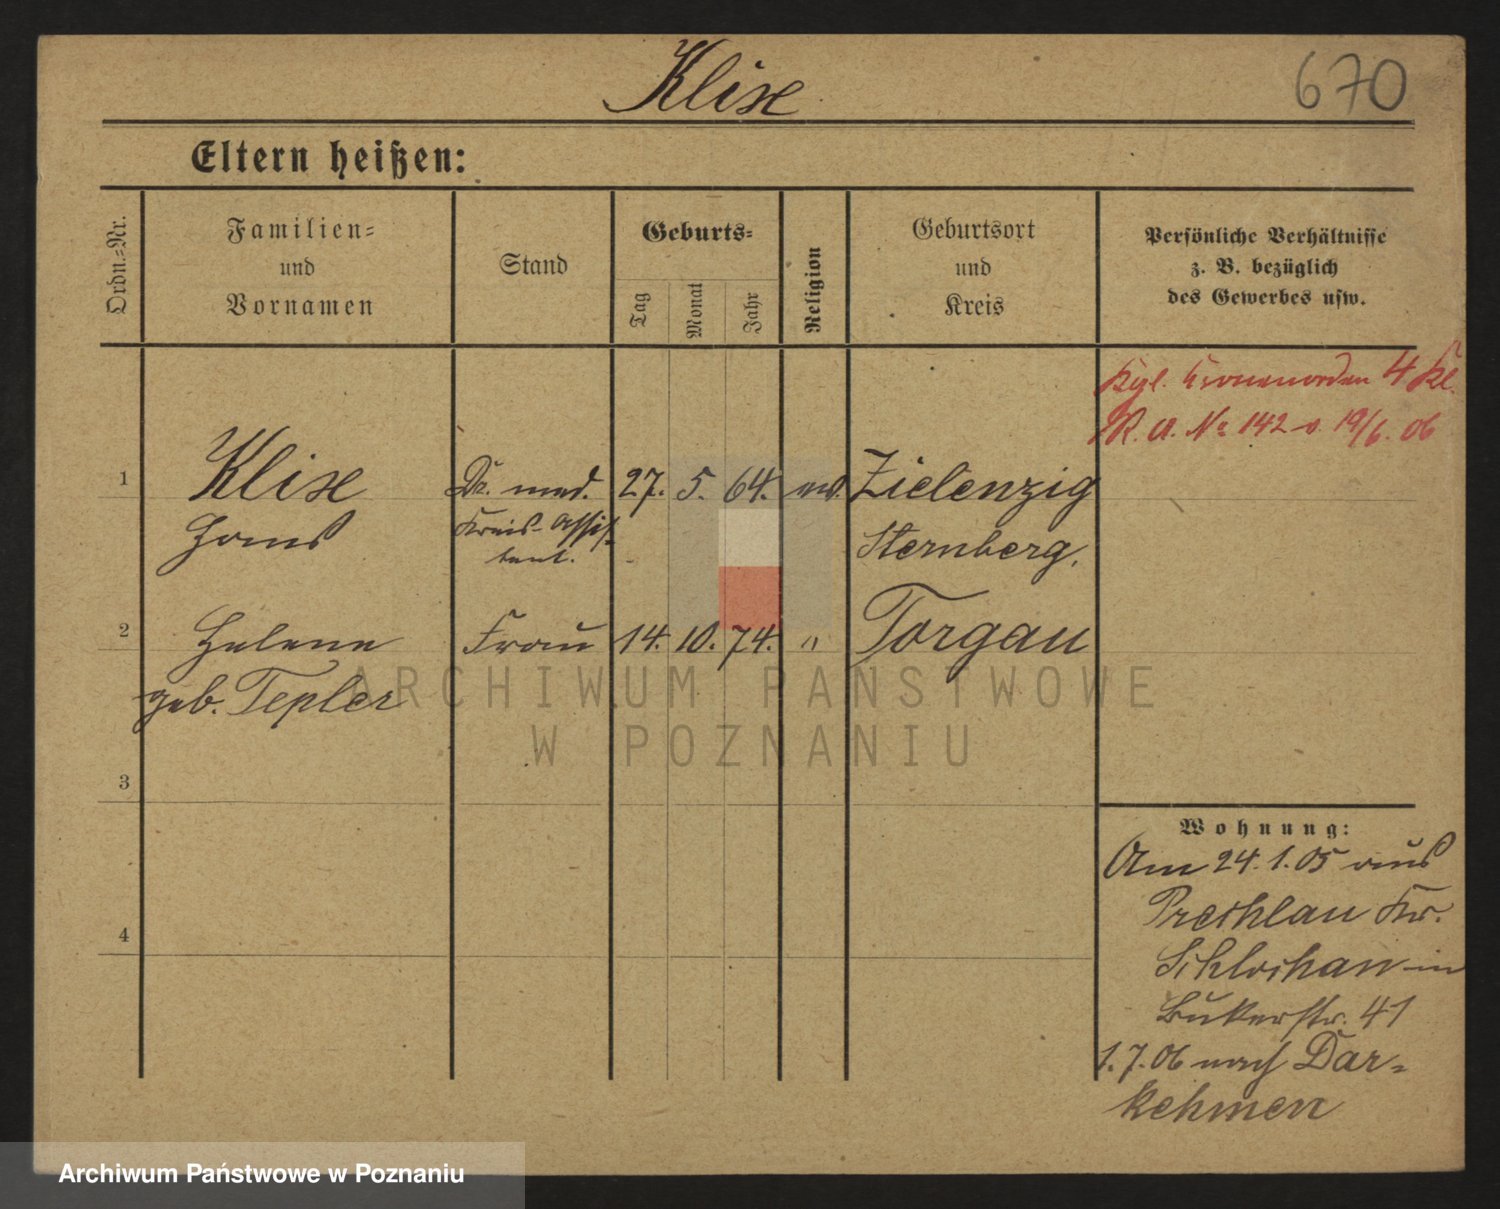 Klixe
670
Eltern heißen:
Ordn.-Nr.
Familien-
und
Vornamen
Stand
Geburts-
Tag
Monat
Jahr
Religion
Geburtsort
und
Kreis
Persönliche Verhältnisse
z. B. bezüglich
des Gewerbes usw.
Kgl. Kronenorden 4 Kl.
R. A. No 142 v. 19/6. 06
1
Klixe
Hans
Dr. med.
Kreis-Assis-
tent.
27. 5. 64.
ev.
Zielenzig
Sternberg,
2
Helene
geb. Tepler
Frau
14. 10. 74.
"
Torgau
3
4
Wohnung:
Am 24.1.05 aus
Prechlau Kr.
Schlochau in
Bukerstr. 41
1.7.06 nach Dar-
kehmen
ARCHIWUM PAŃSTWOWE
W POZNANIU
Archiwum Państwowe w Poznaniu